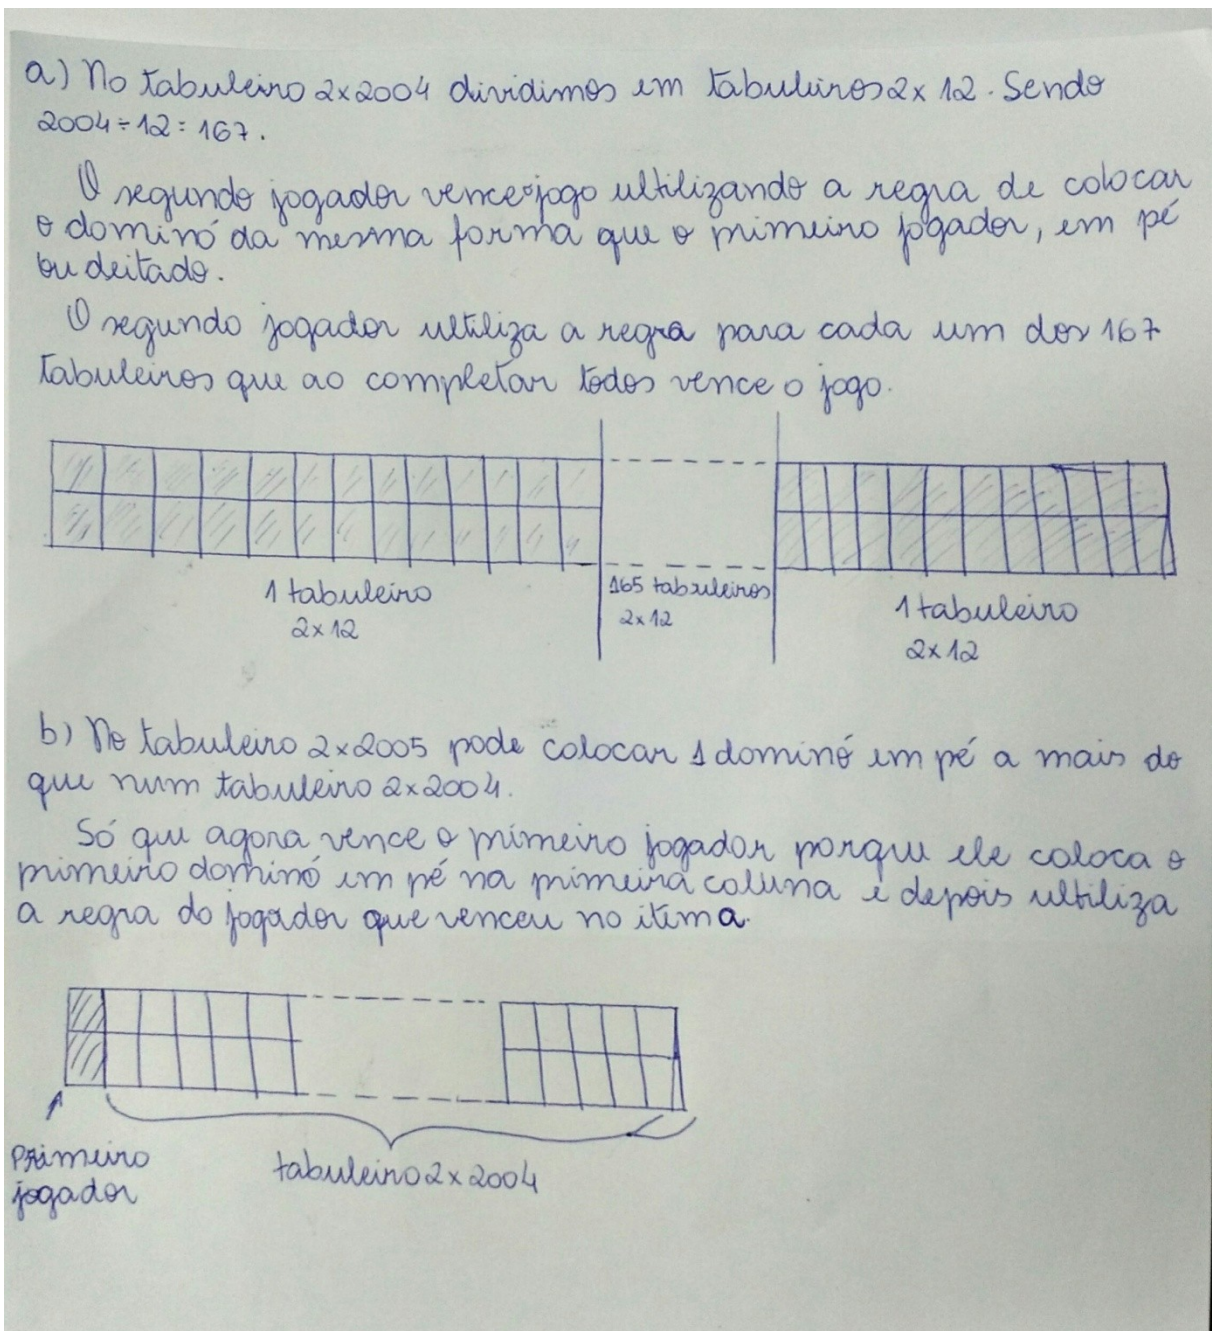 a) No tabuleiro 2x2004 dividimos em tabuleiros 2x12. Sendo
2004÷12=167.
O segundo jogador vence o jogo ultilizando a regra de colocar
o dominó da mesma forma que o primeiro jogador, em pé
ou deitado.
O segundo jogador ultiliza a regra para cada um dos 167
tabuleiros que ao completar todos vence o jogo.
1 tabuleiro
2x12
165 tabuleiros
2x12
1 tabuleiro
2x12
b) No tabuleiro 2x2005 pode colocar 1 dominó em pé a mais do
que num tabuleiro 2x2004.
Só que agora vence o primeiro jogador porque ele coloca o
primeiro dominó em pé na primeira coluna e depois ultiliza
a regra do jogador que venceu no item a.
Primeiro
jogador
tabuleiro 2x2004